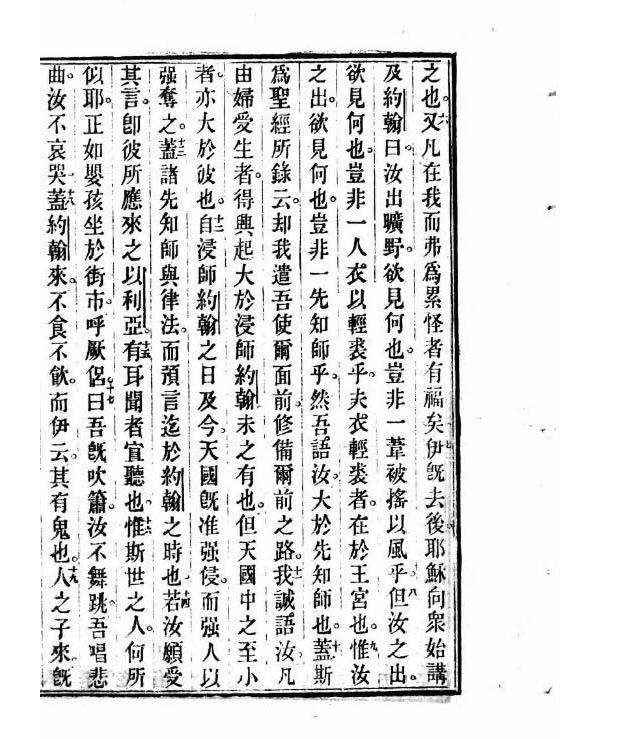 之也。六又凡在我而弗爲累怪者有福矣。七伊旣去後。耶穌向衆始講
及約翰曰。汝出曠野。欲見何也。豈非一葦被搖以風乎。八但汝之出。
欲見何也。豈非一人衣以輕裘乎。夫衣輕裘者。在於王宮也。九惟汝
之出。欲見何也。豈非一先知師乎。然吾語汝。大於先知師也。十蓋斯
爲聖經所錄云。却我遣吾使爾面前。修備爾前之路。十一我誠語汝。凡
由婦受生者。得興起大於浸師約翰未之有也。但天國中之至小
者。亦大於彼也。十二自浸師約翰之日及今。天國旣准强侵。而强人以
强奪之。十三蓋諸先知師與律法。而預言迄於約翰之時也。十四若汝願受
其言。卽彼所應來之以利亞。十五有耳聞者宜聽也。十六惟斯世之人。何所
似耶。正如嬰孩坐於街市。呼厥侶十七曰。吾旣吹簫。汝不舞跳。吾唱悲
曲。汝不哀哭。十八蓋約翰來。不食不飲。而伊云。其有鬼也。十九人之子來。旣